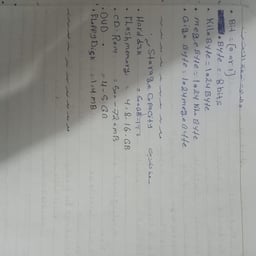 • Bit - [0 or 1]
• Byte = 8 bits
• Kilo Byte = 1024 Byte
• Mega Byte = 1024 Kilo Byte
• Giga Byte = 1024 mega Byte
Storage Capacity
• Hard disk
• Flash memory 4. 8. 16. GB
• CD. Rom
• DVD. = 4.5 GB
• Floppy Disk = 1.4 MB